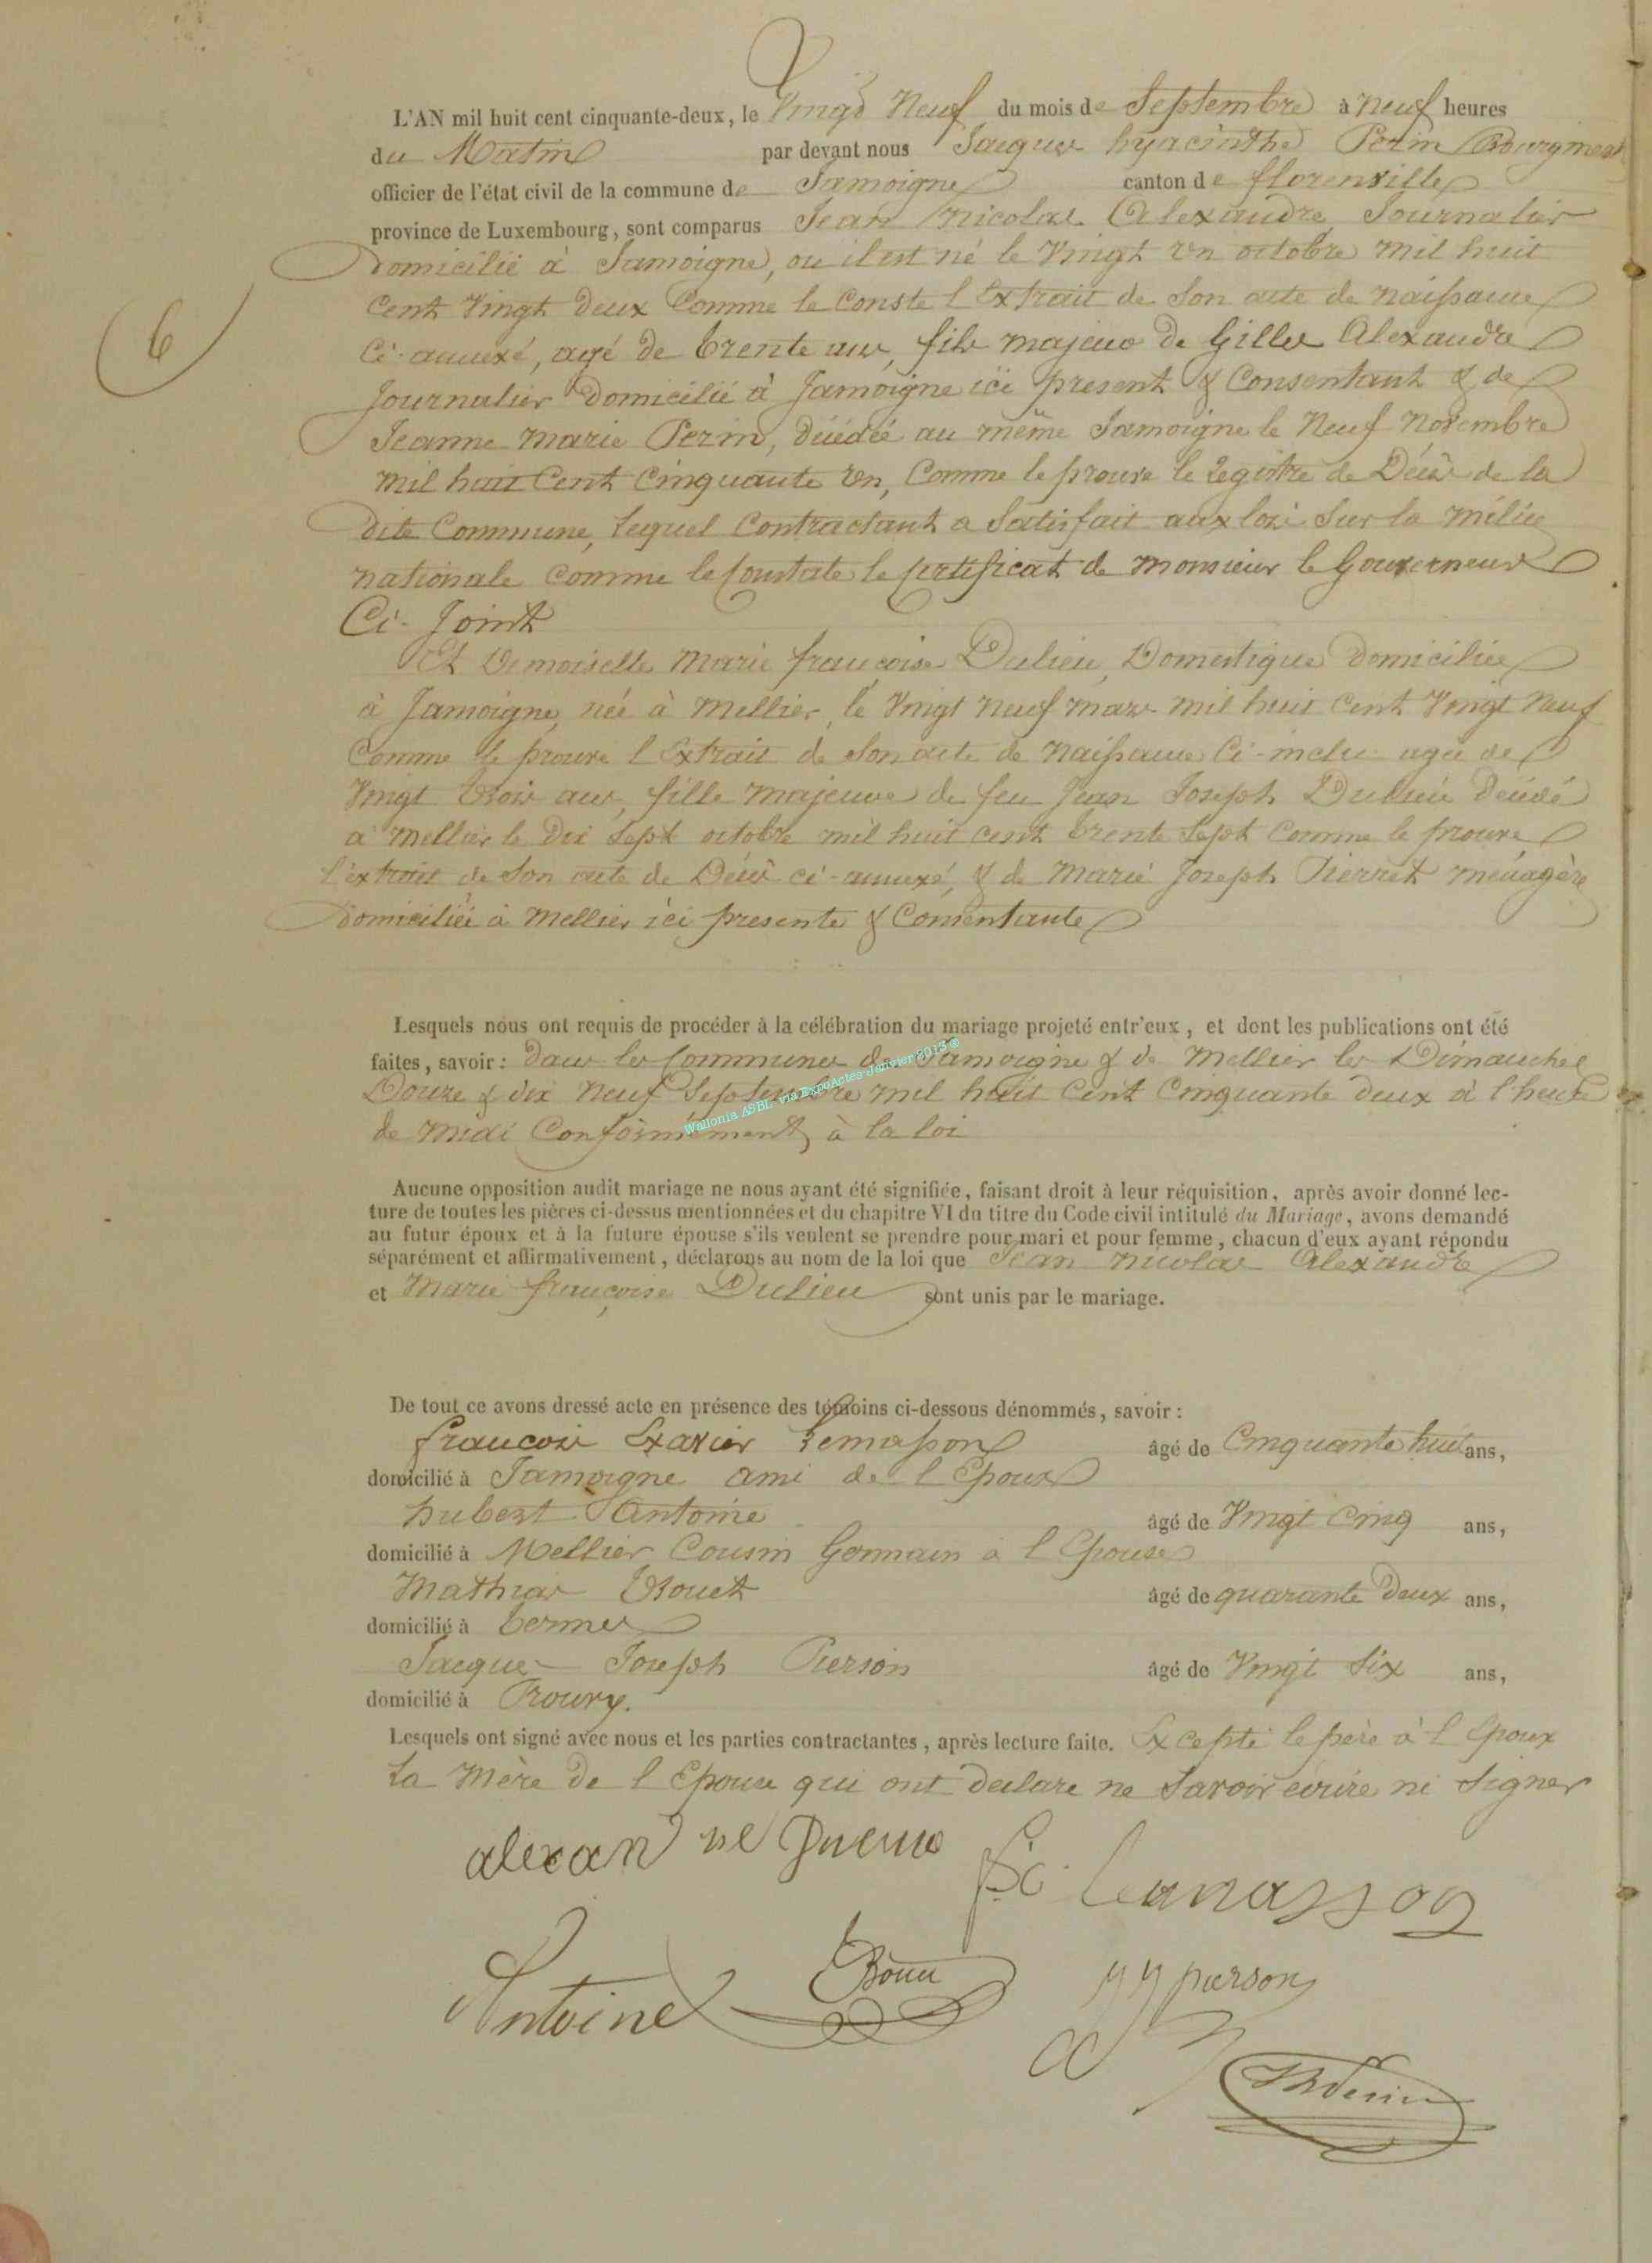 L'AN mil huit cent cinquante-deux, le Vingt Neuf du mois de Septembre à neuf heures
du Matin par devant nous Jacques hyacinthe Perin Bourgmestre
officier de l'état civil de la commune de Jamoigne canton de florenville
province de Luxembourg, sont comparus Jean Nicolas Alexandre Journalier
Domicilié à Jamoigne, ou il est né le Vingt un octobre mil huit
Cent Vingt deux Comme le Conste l'Extrait de Son acte de naissance
Ci-annexé, agé de trente ans, fils majeur de Gilles Alexandre
Journalier Domicilié à Jamoigne ici present & Consentant & de
Jeanne Marie Perin, décédée au même Jamoigne le Neuf Novembre
mil huit Cent Cinquante un, Comme le prouve le Registre de Décès de la
dite Commune, lequel Contractant a Satisfait aux lois Sur la milice
nationale comme le Constate le Certificat de monsieur le Gouverneur
Ci-Joint
Et Demoiselle Marie françoise Dulieu, Domestique Domiciliée
à Jamoigne, née à Mellier, le Vingt neuf mars mil huit Cent Vingt Neuf
Comme le prouve l'Extrait de Son acte de naissance Ci-inclu agée de
Vingt trois ans, fille majeure de feu Jean Joseph Dulieu décédé
à Mellier le Dix Sept octobre mil huit cent trente Sept Comme le prouve
l'extrait de Son acte de Décès ci-annexé, & de Marie Joseph Pierret ménagère
Domiciliée à Mellier ici presente & Consentante
Lesquels nous ont requis de procéder à la célébration du mariage projeté entr'eux, et dont les publications ont été
faites, savoir: dans les Communes de Jamoigne & de Mellier les Dimanches
Douze & dix Neuf Septembre mil huit Cent Cinquante deux à l'heure
de midi Conformément à la loi
Wallonia ASBL- via ExpoActes-Janvier 2013®
Aucune opposition audit mariage ne nous ayant été signifiée, faisant droit à leur réquisition, après avoir donné lec-
ture de toutes les pièces ci-dessus mentionnées et du chapitre VI du titre du Code civil intitulé du Mariage, avons demandé
au futur époux et à la future épouse s'ils veulent se prendre pour mari et pour femme, chacun d'eux ayant répondu
séparément et affirmativement, déclarons au nom de la loi que Jean Nicolas Alexandre
et Marie françoise Dulieu sont unis par le mariage.
De tout ce avons dressé acte en présence des témoins ci-dessous dénommés, savoir:
francois Xavier Lemasson âgé de Cinquante huit ans,
domicilié à Jamoigne ami de l'Epoux
hubert Antoine âgé de Vingt Cinq ans,
domicilié à Mellier Cousin Germain à l'Epouse
Mathias âgé de quarante Deux ans,
domicilié à termes
Jacque Joseph Pierson âgé de Vingt Six ans,
domicilié à Prouvy.
Lesquels ont signé avec nous et les parties contractantes, après lecture faite. Excepté le père à l'Epoux
La Mère de l'Epouse qui ont declare ne Savoir écrire ni Signer
6
alexan
Lemasson
Antoine
pierson